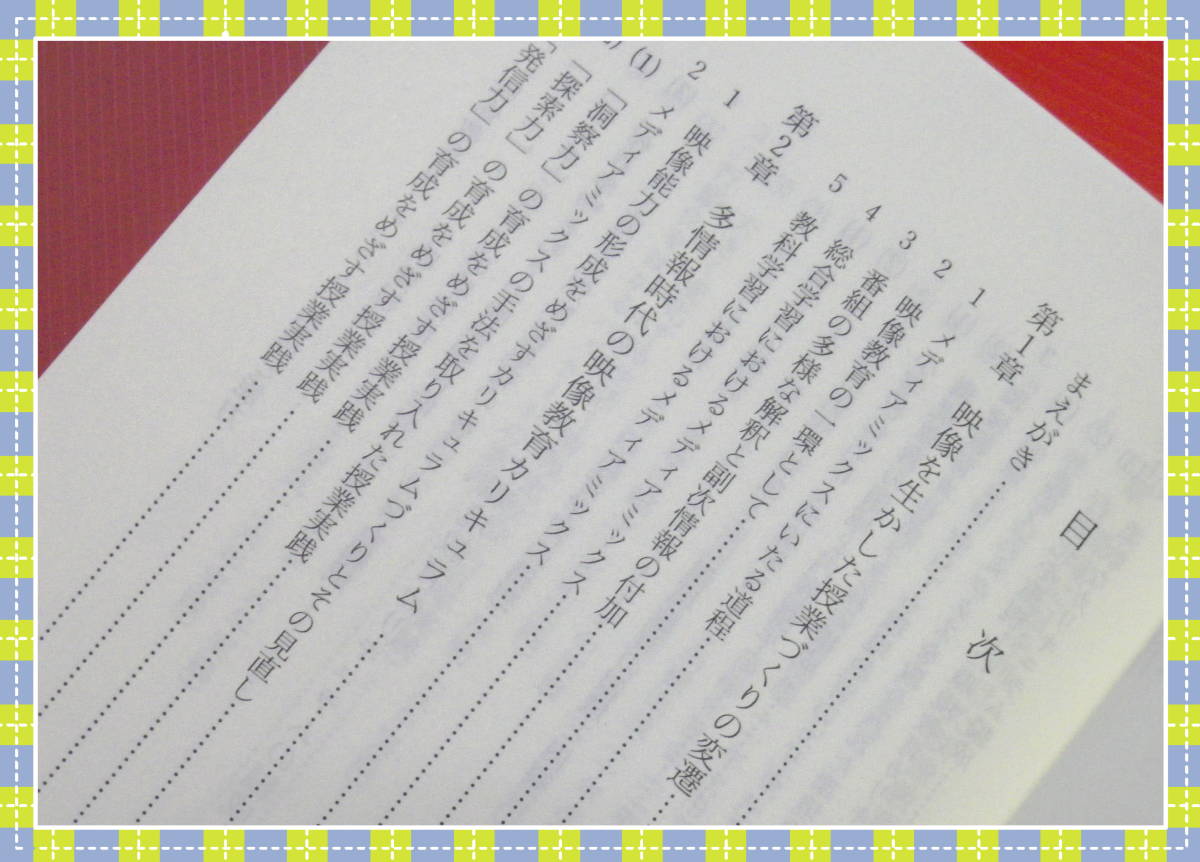 目次
まえがき……………
第1章 映像を生かした授業づくりの変遷
1 メディアミックスにいたる道程……………
2 映像教育の一環として……………
3 番組の多様な解釈と副次情報の付加……………
4 総合学習におけるメディアミックス……………
5 教科学習におけるメディアミックス……………
第2章 多情報時代の映像教育カリキュラム……………
1 映像能力の形成をめざすカリキュラムづくりとその見直し
2 メディアミックスの手法を取り入れた授業実践……………
(1) 「洞察力」の育成をめざす授業実践……………
「探索力」の育成をめざす授業実践……………
「発信力」の育成をめざす授業実践……………